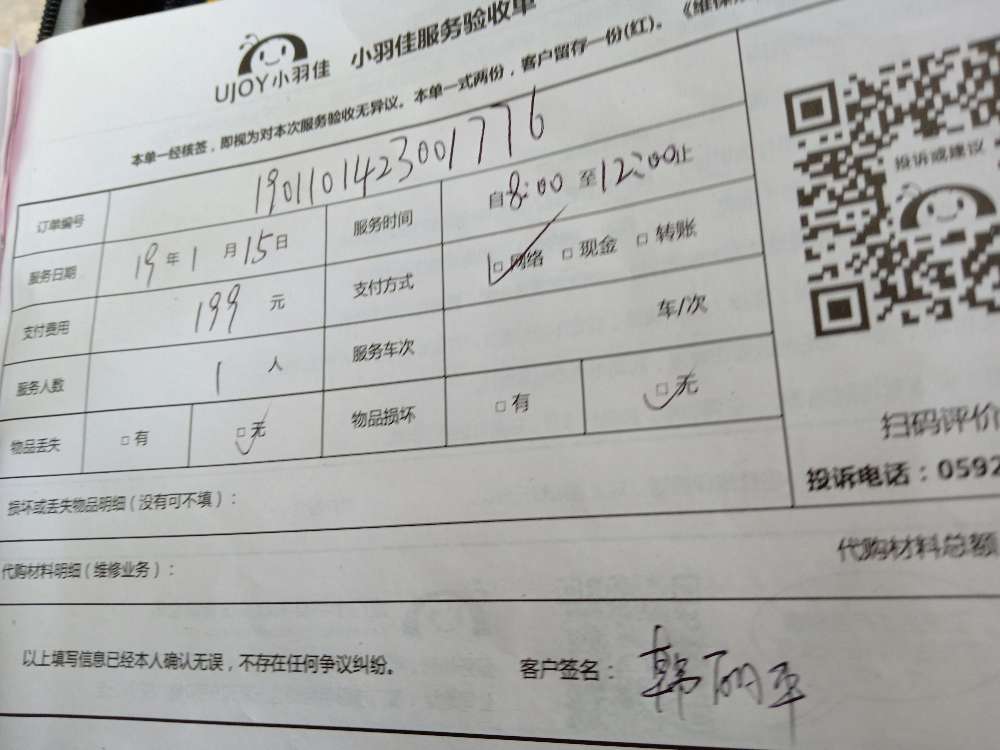 UJOY小羽佳 小羽佳服务验收单
本单一经核签，即视为对本次服务验收无异议。本单一式两份，客户留存一份(红)。
订单编号 1901101423001776
服务日期 19年1月15日 服务时间 自8:00至12:00止
支付费用 199元 支付方式 □网络 □现金 □转账
服务人数 1人 服务车次 车/次
物品丢失 □有 □无 物品损坏 □有 □无
投诉或建议
扫码评价
投诉电话：0592
损坏或丢失物品明细（没有可不填）：
代购材料明细（维修业务）： 代购材料总额
以上填写信息已经本人确认无误，不存在任何争议纠纷。 客户签名：韩丽平